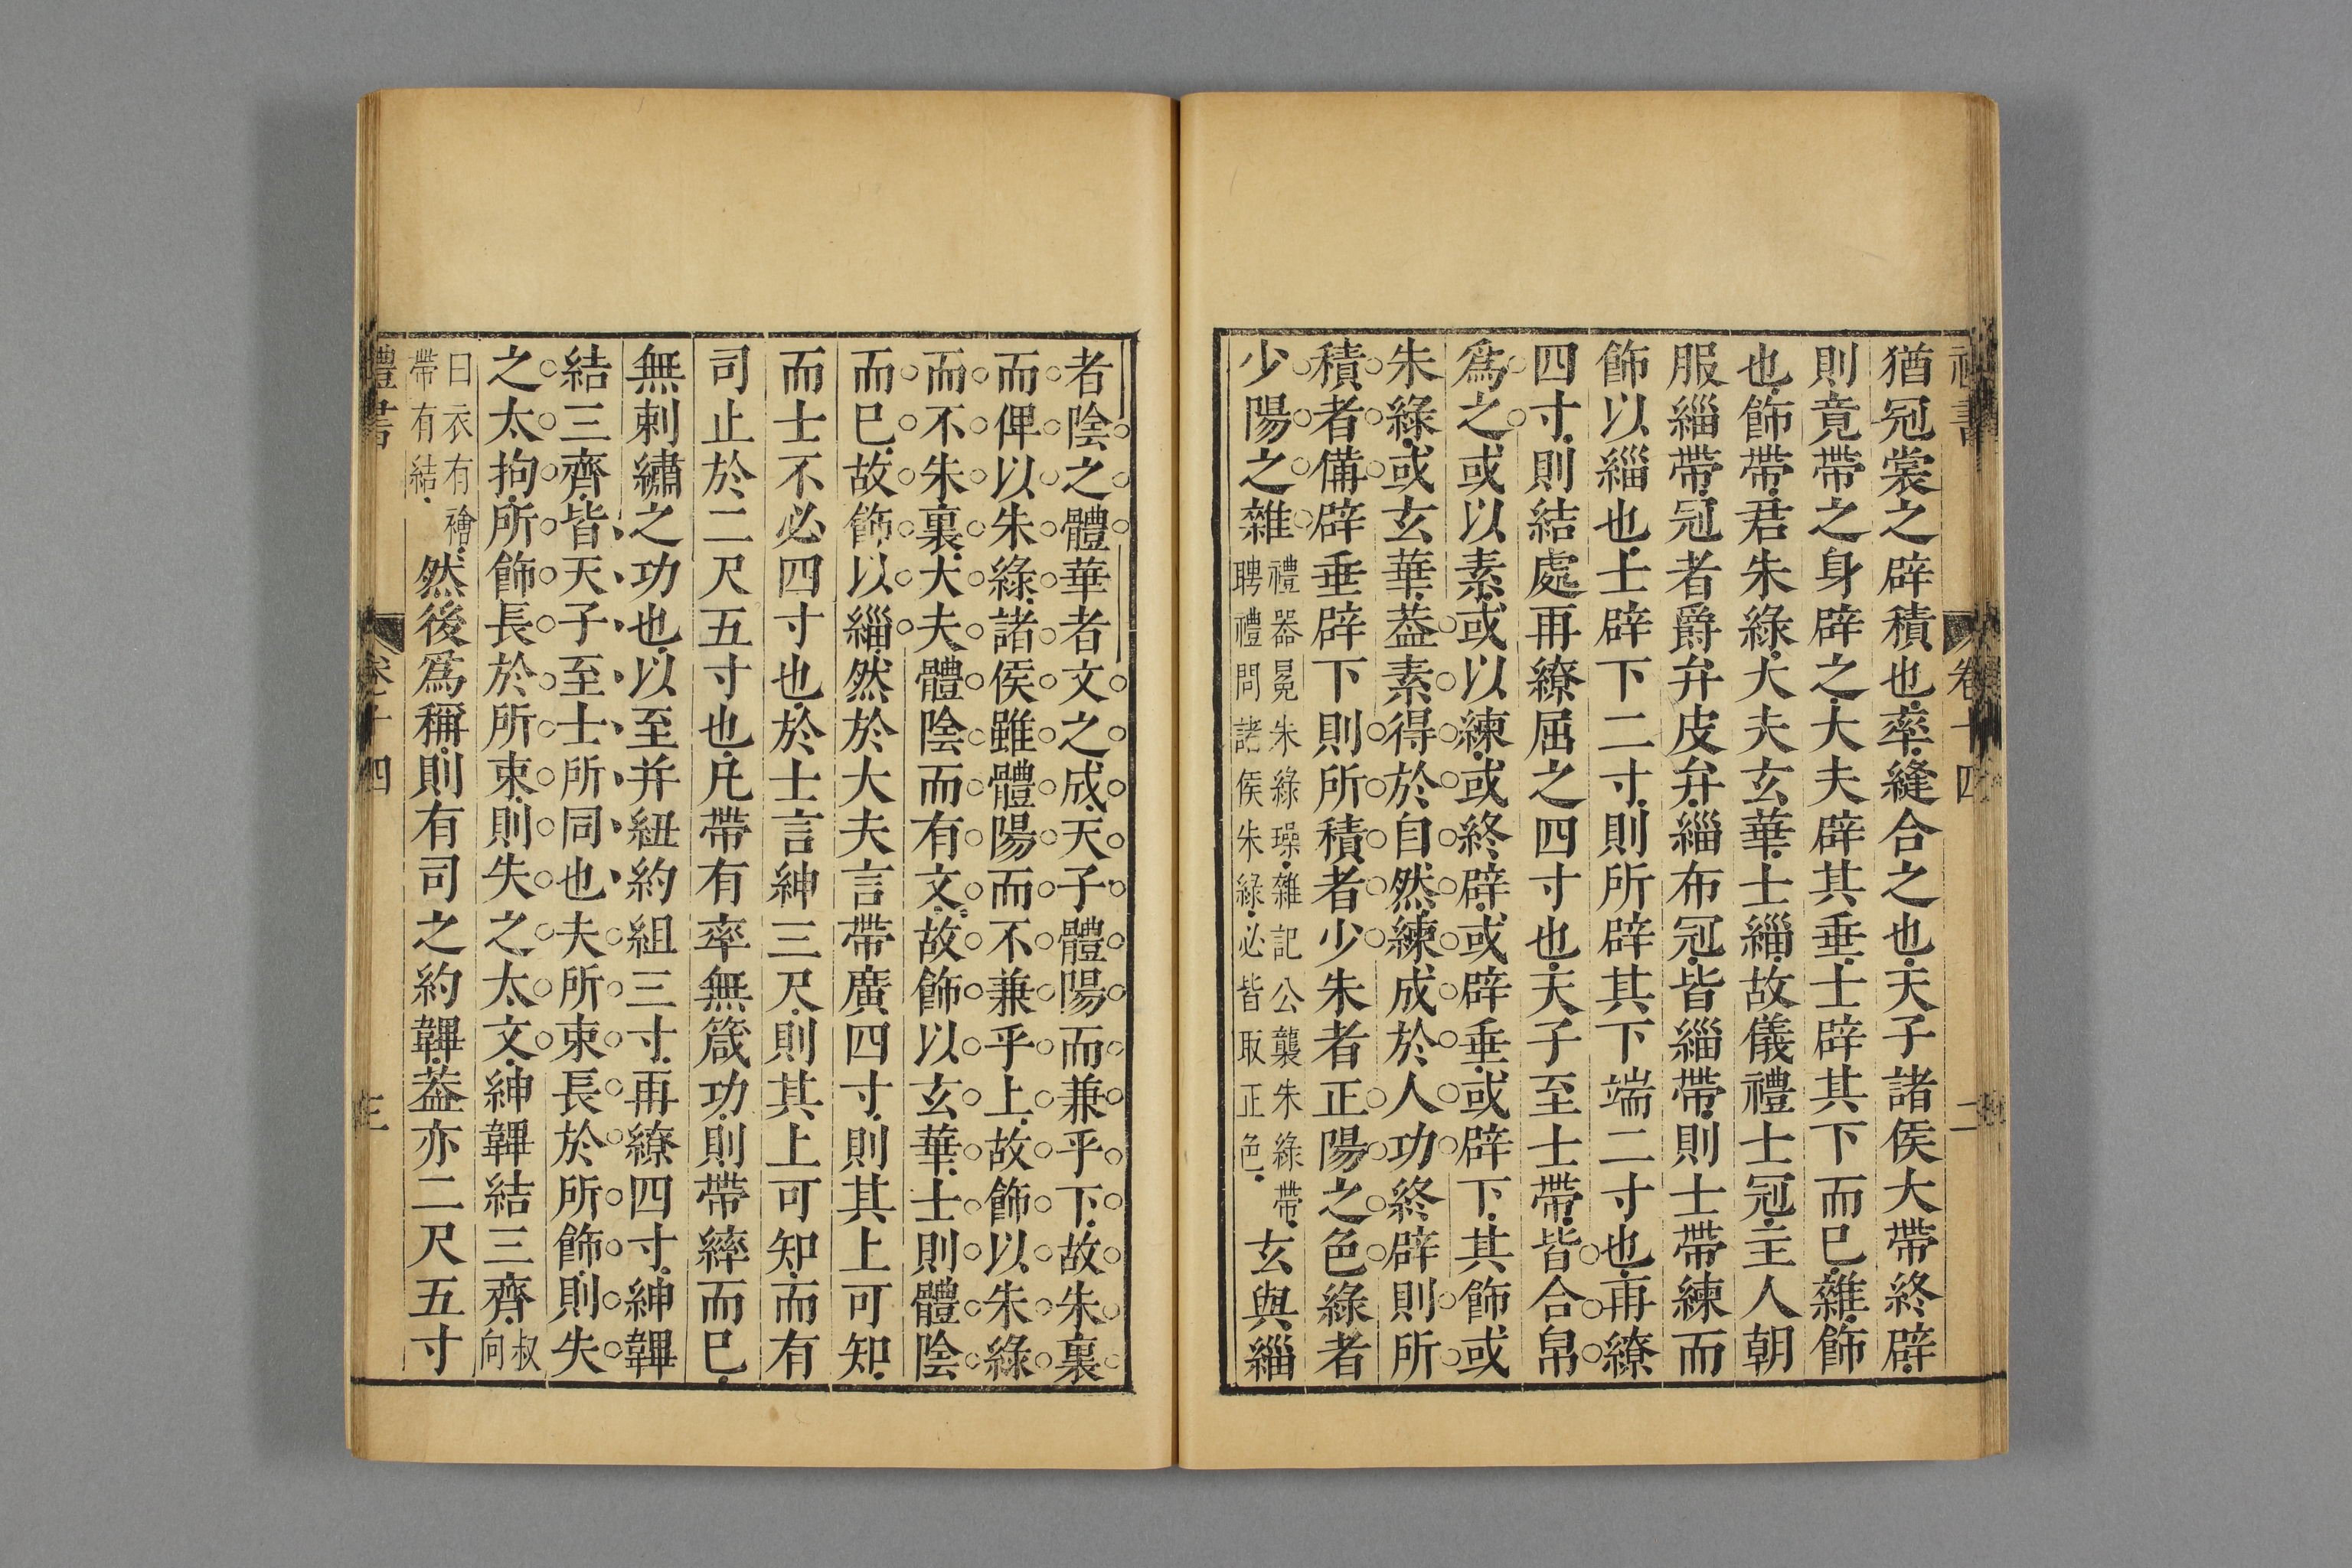 禮書 卷十四 二
猶冠裳之辟積也率縫合之也天子諸侯大帶終辟
則竟帶之身辟之大夫辟其垂士辟其下而已雜飾
也飾帶君朱綠大夫玄華士緇故儀禮士冠主人朝
服緇帶冠者爵弁皮弁緇布冠皆緇帶則士帶練而
飾以緇也士辟下二寸則所辟其下端二寸也再繚
四寸則結處再繚屈之四寸也天子至士帶皆合帛
爲之或以素或以練或終辟或辟垂或辟下其飾或
朱綠或玄華葢素得於自然練成於人功終辟則所
積者備辟垂辟下則所積者少朱者正陽之色綠者
少陽之雜
禮器冕朱綠璪雜記公襲朱綠帶
聘禮問諸侯朱綠必皆取正色
玄與緇
者陰之體華者文之成天子體陽而兼乎下故朱裏
而俾以朱綠諸侯雖體陽而不兼乎上故飾以朱綠
而不朱裏大夫體陰而有文故飾以玄華士則體陰
而已故飾以緇然於大夫言帶廣四寸則其上可知
而士不必四寸也於士言紳三尺則其上可知而有
司止於二尺五寸也凡帶有率無箴功則帶繂而已
無刺繡之功也以至并紐約組三寸再繚四寸紳韠
結三齊皆天子至士所同也夫所束長於所飾則失
之太拘所飾長於所束則失之太文紳韠結三齊
叔
向
曰衣有襘
帶有結
然後爲稱則有司之約韠葢亦二尺五寸
禮書 卷十四 三